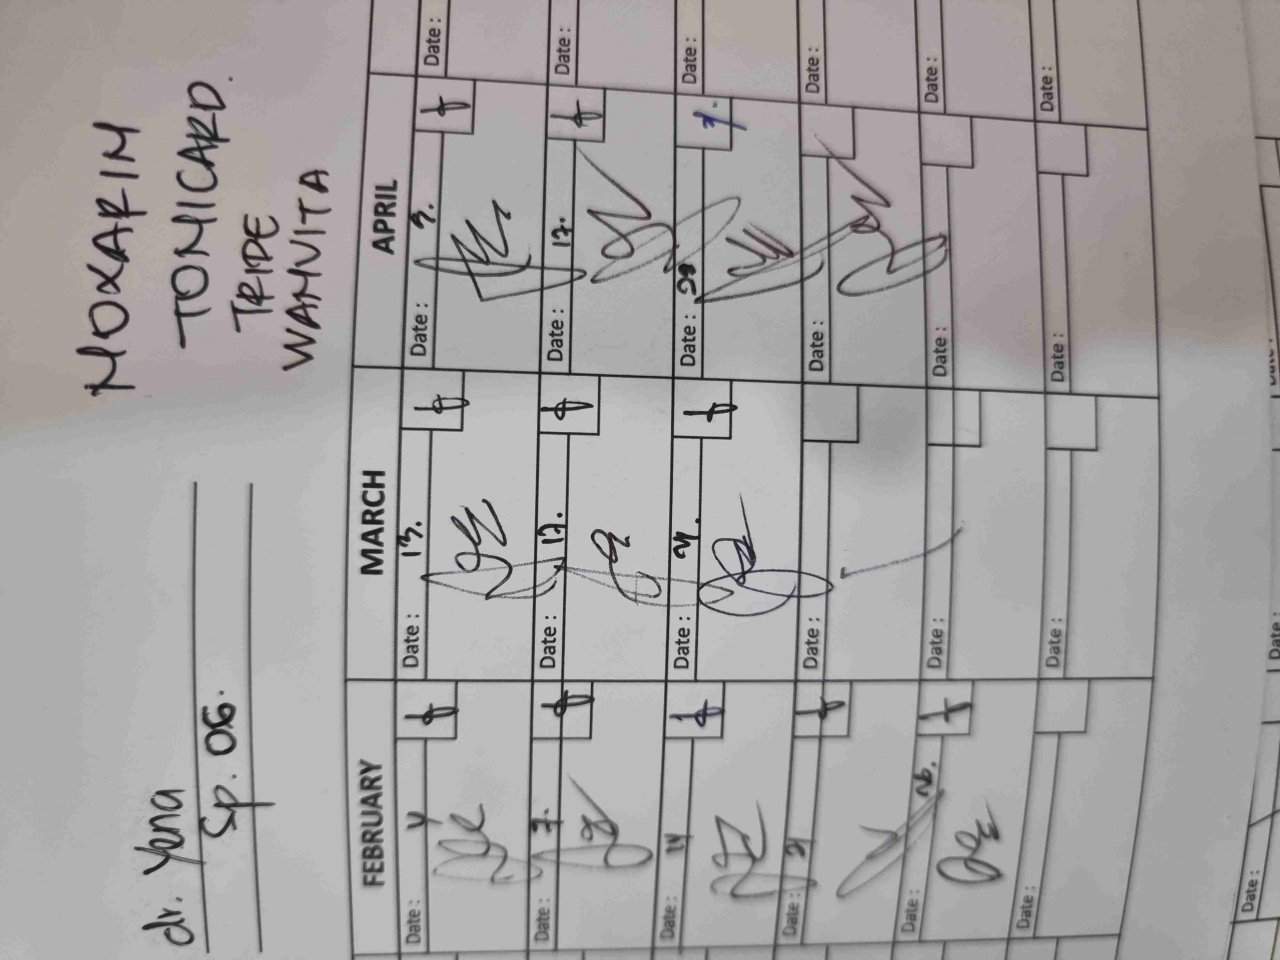 dr. Yena
Sp. OG.
MOXARIM
TOMICARD.
TRIDE
WANVITA
FEBRUARY
MARCH
APRIL
Date : 4
Date : 13.
Date : 3.
Date :
Date : 7.
Date : 17.
Date : 17.
Date :
Date : 14
Date : 24.
Date :
Date :
Date : 21
Date :
Date :
Date :
Date : 26.
Date :
Date :
Date :
Date :
Date :
Date :
Date :
Date :
Date :